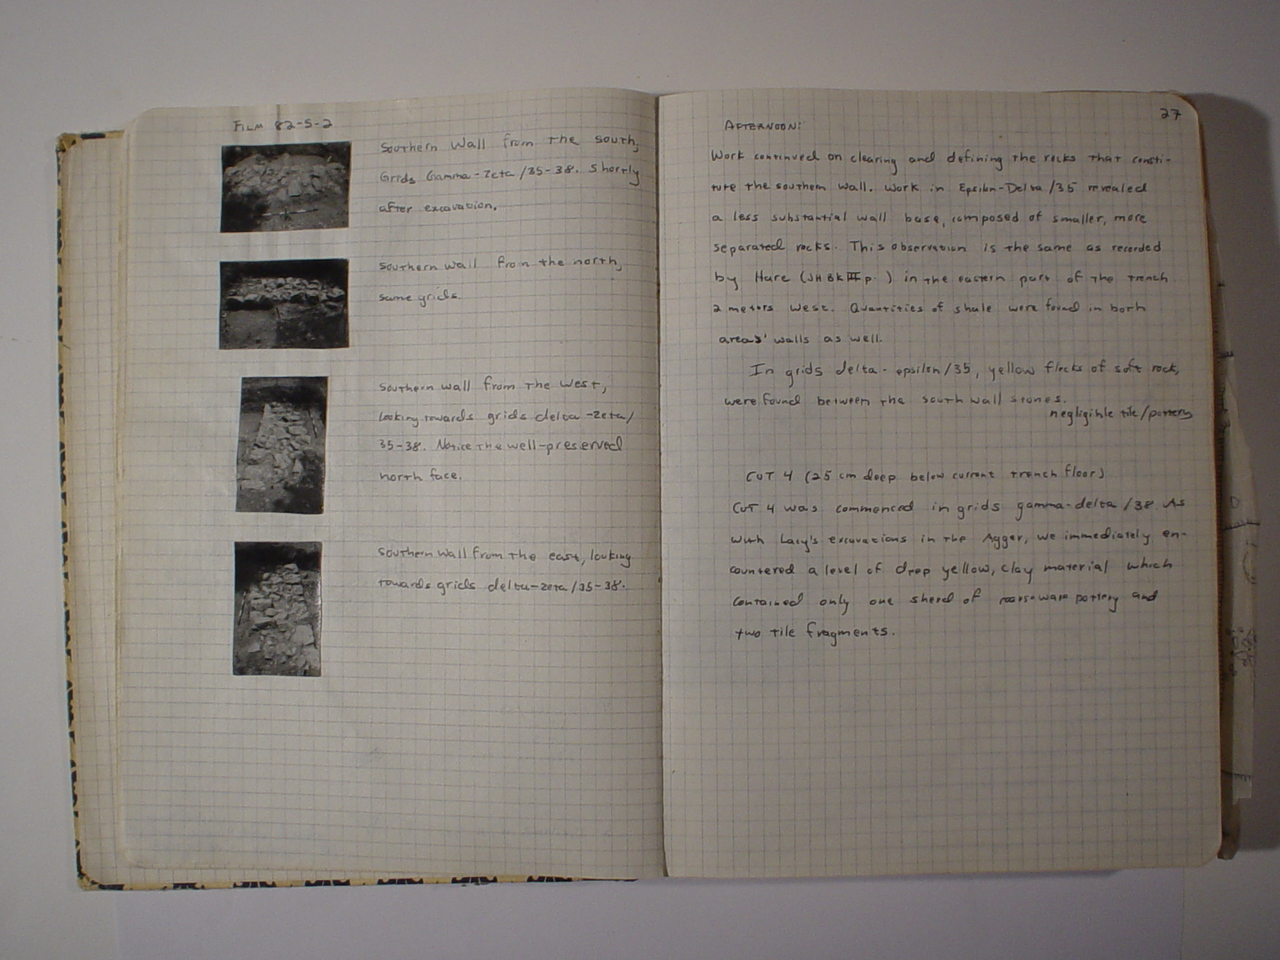 FILM 82-S-2
Southern Wall from the south,
Grids Gamma-Zeta/35-38. Shortly
after excavation.
Southern wall from the north,
same grids.
Southern wall from the west,
looking towards grids delta-zeta/
35-38. Notice the well-preserved
north face.
Southern wall from the east, looking
towards grids delta-zeta/35-38.
27
AFTERNOON:
Work continued on clearing and defining the rocks that consti-
tute the southern wall. Work in Epsilon-Delta/35 revealed
a less substantial wall base, composed of smaller, more
separated rocks. This observation is the same as recorded
by Hare (JH BK III p. ) in the eastern part of the trench
2 meters west. Quantities of shale were found in both
areas' walls as well.
In grids delta-epsilon/35, yellow flecks of soft rock,
were found between the south wall stones.
negligible tile/pottery
CUT 4 (25 cm deep below current trench floor)
CUT 4 was commenced in grids gamma-delta/38. As
with Lacy's excavations in the Agger, we immediately en-
countered a level of deep yellow, clay material which
contained only one sherd of coarseware pottery and
two tile fragments.